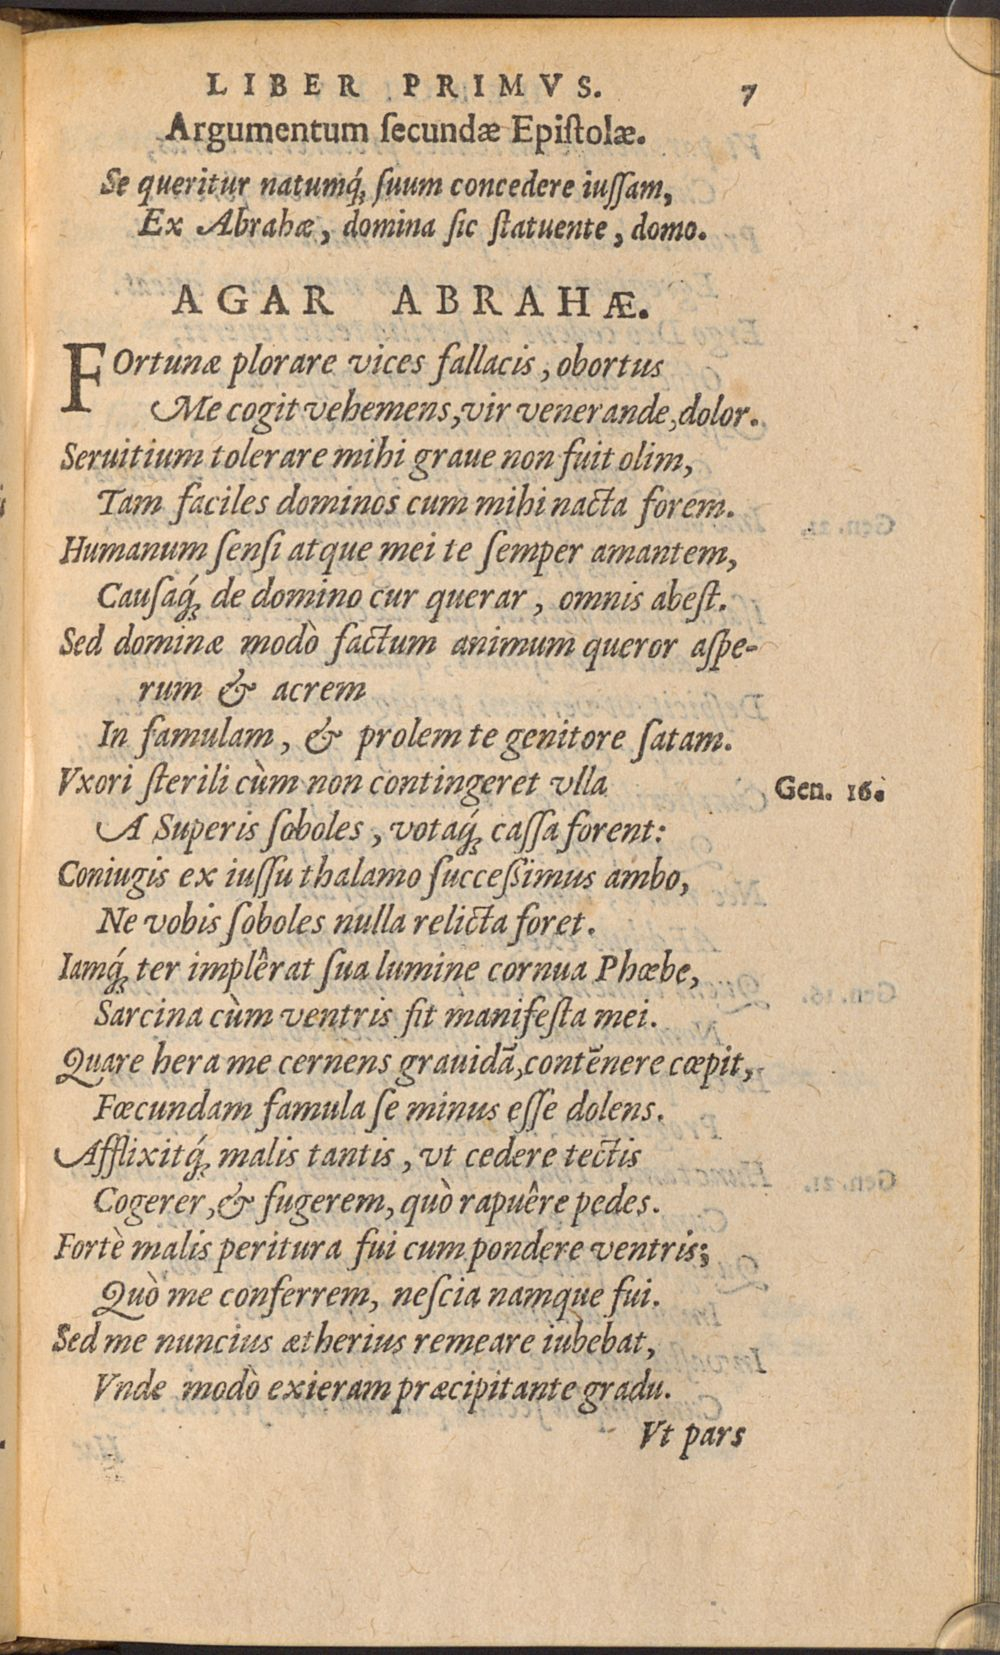 LIBER PRIMVS. 7
Argumentum ſecundæ Epiſtolæ.
Se queritur natumq́; ſuum concedere iuſſam,
Ex Abrahæ, domina ſic ſtatuente, domo.
AGAR ABRAHÆ.
FOrtunæ plorare vices fallacis, obortus
Me cogit vehemens, vir venerande, dolor.
Seruitium tolerare mihi graue non fuit olim,
Tam faciles dominos cum mihi nacta forem.
Humanum ſenſi atque mei te ſemper amantem,
Cauſaq́; de domino cur querar, omnis abeſt.
Sed dominæ modò factum animum queror aſpe-
rum & acrem
In famulam, & prolem te genitore ſatam.
Vxori ſterili cùm non contingeret vlla
Gen. 16.
A Superis ſoboles, votaq́; caſſa forent:
Coniugis ex iuſſu thalamo ſucceßimus ambo,
Ne vobis ſoboles nulla relicta foret.
Iamq́; ter implêrat ſua lumine cornua Phœbe,
Sarcina cùm ventris fit manifeſta mei.
Quare hera me cernens grauidā, contēnere cœpit,
Fœcundam famula ſe minus eſſe dolens.
Afflixitq́; malis tantis, vt cedere tectis
Cogerer, & fugerem, quò rapuêre pedes.
Fortè malis peritura fui cum pondere ventris;
Quò me conferrem, neſcia namque fui.
Sed me nuncius ætherius remeare iubebat,
Vnde modò exieram præcipitante gradu.
Vt pars